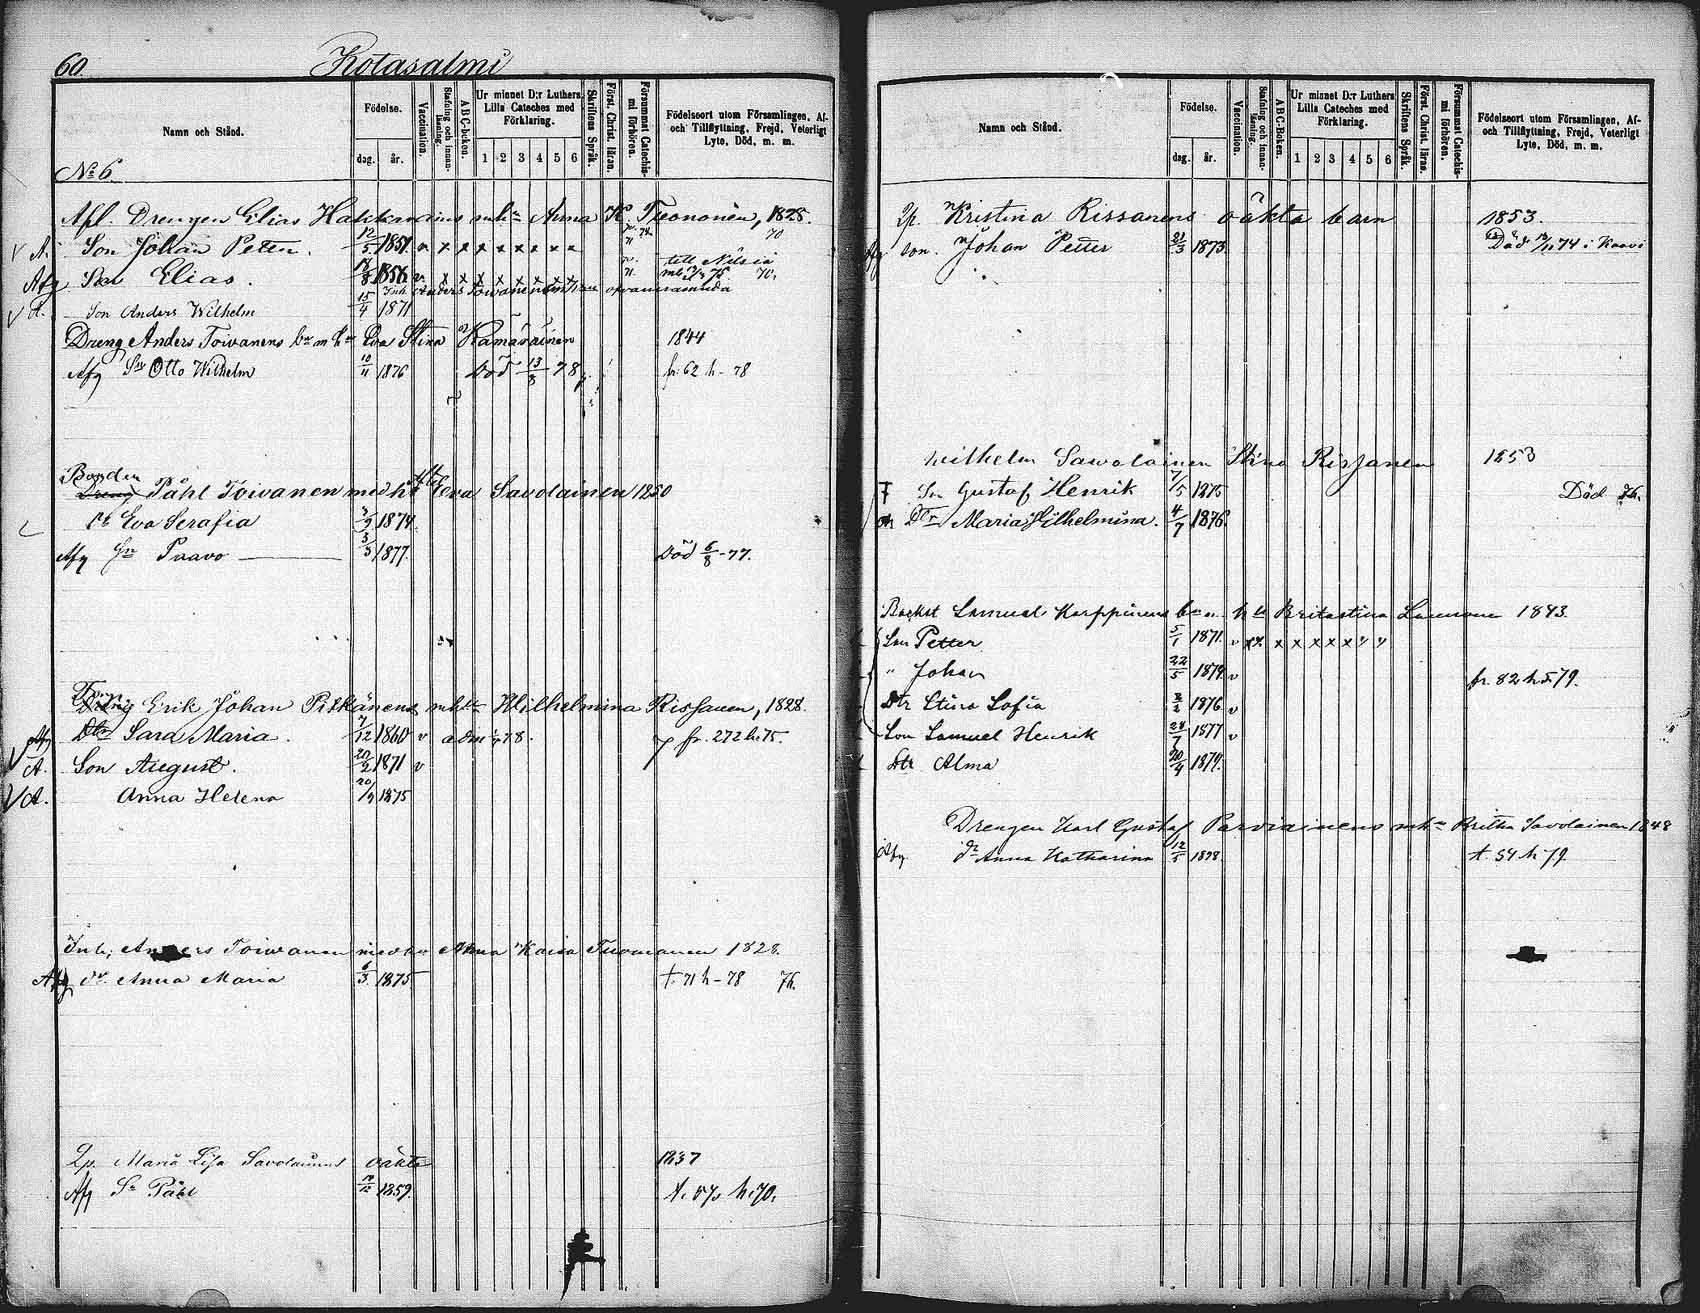 60. Kotasalmi
Namn och Stånd.
Födelse.
dag. år.
Vaccination.
Stafning och innanläsning.
ABC-boken.
Ur minnet D:r Luthers Lilla Cateches med Förklaring.
1 2 3 4 5 6
Skriftens Språk.
Först. Christ. läran.
Försummat Catechismi förhören.
Födelseort utom Församlingen, Af- och Tillflyttning, Frejd, Veterligt Lyte, Död, m. m.
No 6
Afl. Drengen Elias Hakkarains mhu Anna K. Tuononen, 1828.
A. Son Johan Peter 12/5 1851. v x x x x x x x 70
Afg Son Elias. 1856 v. x x x x x x till Nilsiä
Inh. Anders Toivanens ofvannämnda
A. Son Anders Wilhelm 15/4 1871
Dreng Anders Toivanens bn m hu Eva Stina Hämäläinen 1844
Afg Sn Otto Wilhelm 10/11 1876 Död 13/8 78 fr. 62 h - 78
Bonden
Dreng Påhl Toivanen med hu Eva Savolainen 1850
Dr Eva Serafia 1874
Afg Sn Paavo 3/3 1877. Död 6/8 -77.
Dreng Erik Johan Pitkänens mhu Wilhelmina Rissanen, 1828
Afg Dtr Sara Maria. 7/12 1860 v adm 78. fr. 272 h. 75.
A. Son August. 20/2 1871 v
A. Anna Helena 1875
Inh. Anders Toivanen med hu Anna Kaisa Tuomanen 1828.
Afg dr. Anna Maria 6/3 1875 t. 71 h - 78 76.
Qp. Maria Lisa Savolainens oäkta 1837
Afg Sn Påhl 1859
Namn och Stånd.
Födelse.
dag. år.
Vaccination.
Stafning och innanläsning.
ABC-Boken.
Ur minnet D:r Luthers Lilla Cateches med Förklaring.
1 2 3 4 5 6
Skriftens Språk.
Först. Christ. läran.
Försummat Catechismi förhören.
Födelseort utom Församlingen, Af- och Tillflyttning, Frejd, Veterligt Lyte, Död, m. m.
Qp. Kristina Rissanens oäkta barn 1853.
Afg son. Johan Petter 21/3 1873 Död 74 i Kaavi
Wilhelm Sawolainen Stina Rissanen 1853
Son Gustaf Henrik 7/5 1875 Död 76.
Dtr Maria Wilhelmina. 4/7 1876
Backst Samuel Karppinens bn m. hu Britastina Laanonen 1843.
Son Petter 5/1 1871. v x x x x x x x " "
" Johan 22/5 1874 v fr. 82 h 79.
Dtr Stina Sofia 1876 v
Son Samuel Henrik 1877 v
Dtr Alma 20/4 1879.
Drengen Karl Gustaf Parviainens mhu Britha Savolainen 1848
Afg. dr Anna Katharina 12/5 1878. t. 54 h 79.